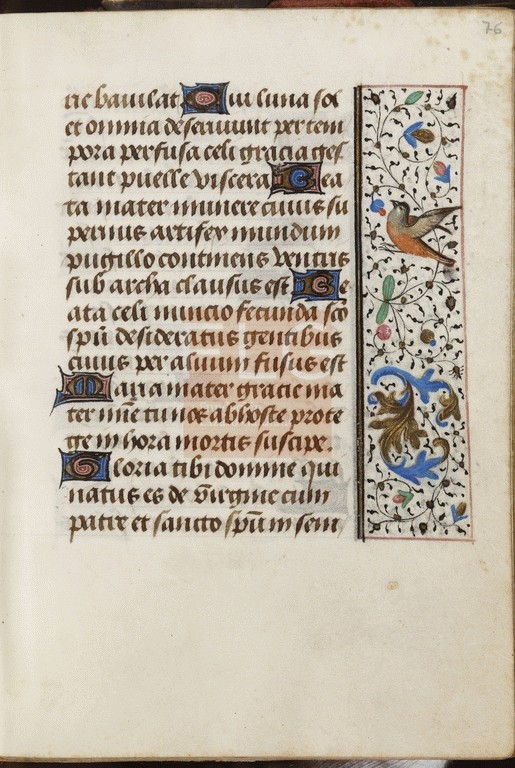 76
rie baiulat Qui luna sol
et omnia deseruiunt per tem
pora perfusa celi gracia ges
tant puelle viscera Bea
ta mater munere cuius su
pernus artifex mundum
pugillo continens ventris
sub archa clausus est Be
ata celi nuncio fecunda sco
spū desideratus gentibus
cuius per aluum fusus est
Maria mater gracie ma
ter mīe tu nos ab hoste prote
ge in hora mortis suscipe.
Gloria tibi domine qui
natus es de virgine cum
patre et sancto spū in sem